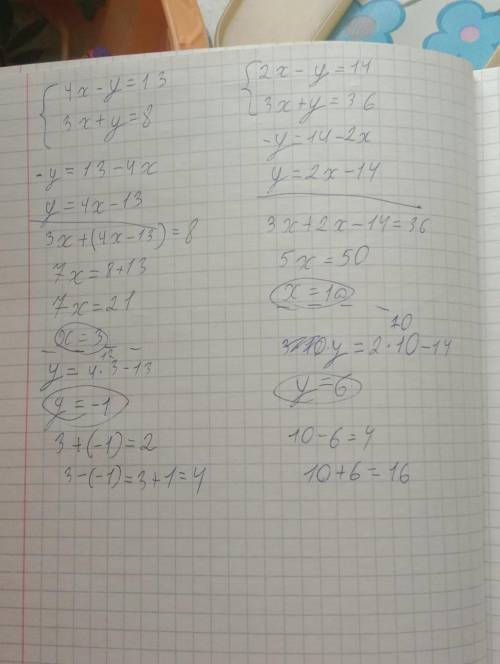 4x-y=13
3x+y=8
-y=13-4x
y=4x-13
3x+(4x-13)=8
7x=8+13
7x=21
x=3
12
y=4·3-13
y=-1
3+(-1)=2
3-(-1)=3+1=4
2x-y=14
3x+y=36
-y=14-2x
y=2x-14
3x+2x-14=36
5x=50
x=10
20
y=2·10-14
y=6
10-6=4
10+6=16